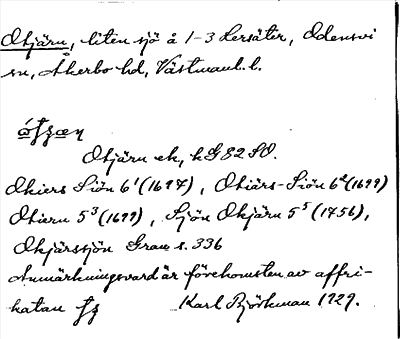 Otjärn, liten sjö å 1-3 Hersäter, Odensvi
sn, Åkerbo hd, Västmanl. l.
óʃʒæṇ
Otjärn ek, kG 82 SO.
Okiers Siön 6¹ (1697), Otiärs-Siön 6² (1699)
Otiern 5³ (1699), Sjön Okjärn 5⁵ (1756),
Okjärssjön Grau s. 336
Anmärkningsvärd är förekomsten av affri-
katan
Karl Björkman 1929.